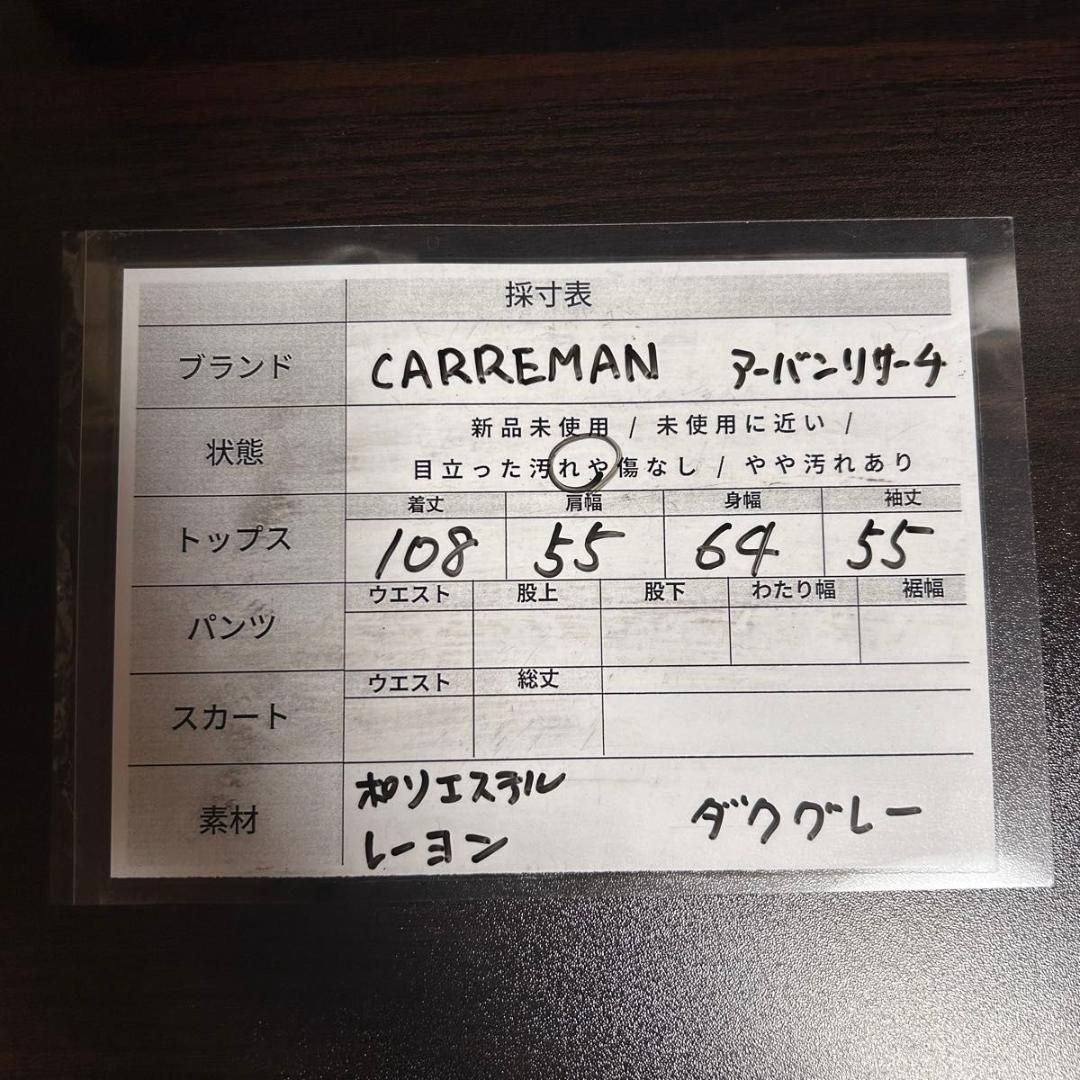 採寸表
ブランド CARREMAN アーバンリサーチ
状態 新品未使用 / 未使用に近い /
目立った汚れや傷なし / やや汚れあり
着丈 肩幅 身幅 袖丈
トップス 108 55 64 55
ウエスト 股上 股下 わたり幅 裾幅
パンツ
ウエスト 総丈
スカート
素材 ポリエステル
レーヨン ダクグレー